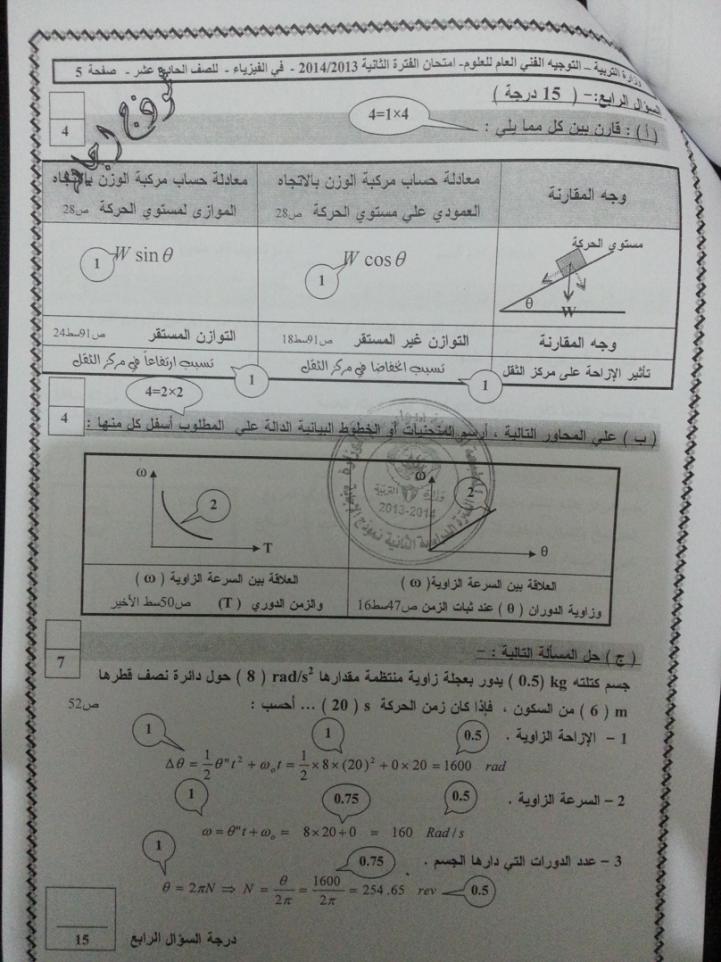 وزارة التربية – التوجيه الفني العام للعلوم- امتحان الفترة الثانية 2014/2013 - في الفيزياء - للصف الحادي عشر - صفحة 5
السؤال الرابع:- ( 15 درجة )
4=1×4
4
( أ ) : قارن بين كل مما يلي :
وجه المقارنة
معادلة حساب مركبة الوزن بالاتجاه العمودي علي مستوي الحركة ص28
معادلة حساب مركبة الوزن بالاتجاه الموازى لمستوي الحركة ص28
مستوي الحركة
θ
W
W cos θ
1
W sin θ
1
وجه المقارنة
التوازن غير المستقر ص91سط18
التوازن المستقر ص91سط24
تأثير الإزاحة على مركز الثقل
تسبب انخفاضا في مركز الثقل
1
تسبب ارتفاعاً في مركز الثقل
1
4=2×2
4
( ب ) علي المحاور التالية ، أرسم المنحنيات أو الخطوط البيانية الدالة علي المطلوب أسفل كل منها :
وزارة التربية
2013-2014
ω
2
θ
ω
2
T
العلاقة بين السرعة الزاوية( ω )
وزاوية الدوران ( θ ) عند ثبات الزمن ص47سط16
العلاقة بين السرعة الزاوية ( ω )
والزمن الدوري ( T ) ص50سط الأخير
7
( ج ) حل المسألة التالية : -
جسم كتلته kg (0.5 ) يدور بعجلة زاوية منتظمة مقدارها rad/s² ( 8 ) حول دائرة نصف قطرها
m ( 6 ) من السكون ، فإذا كان زمن الحركة s ( 20 ) ... أحسب : ص52
1 - الإزاحة الزاوية .
0.5
1
1
Δθ = 1/2 θ"t² + ω₀t = 1/2 × 8 × (20)² + 0 × 20 = 1600 rad
2 – السرعة الزاوية .
0.5
0.75
1
ω = θ"t + ω₀ = 8×20+0 = 160 Rad / s
3 – عدد الدورات التي دارها الجسم .
0.75
1
θ = 2πN ⇒ N = θ/2π = 1600/2π = 254.65 rev
0.5
15
درجة السؤال الرابع